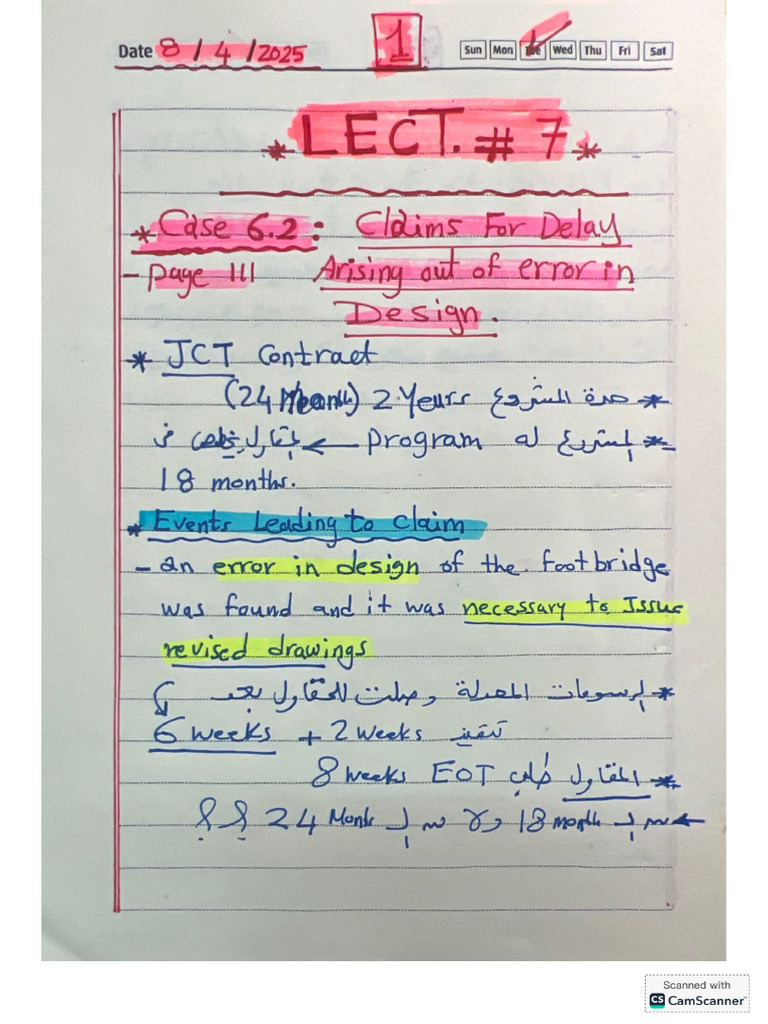 Date 8/4/2025
1
Sun Mon Tue Wed Thu Fri Sat
* LECT. # 7 *
* Case 6.2: Claims For Delay
- Page 111 Arising out of error in
Design.
* JCT Contract
* مدة المشروع 2 Years (24 Month)
* المشروع له Program ← المقاول يخلص في
18 months.
* Events Leading to claim
- an error in design of the footbridge
was found and it was necessary to Issue
revised drawings
* الرسومات المعدلة وصلت للمقاول بعد
6 weeks + 2 weeks تنفيذ
* المقاول طلب 8 weeks EOT
← من الـ 18 month ولا من الـ 24 Month ؟؟
Scanned with
CS CamScanner